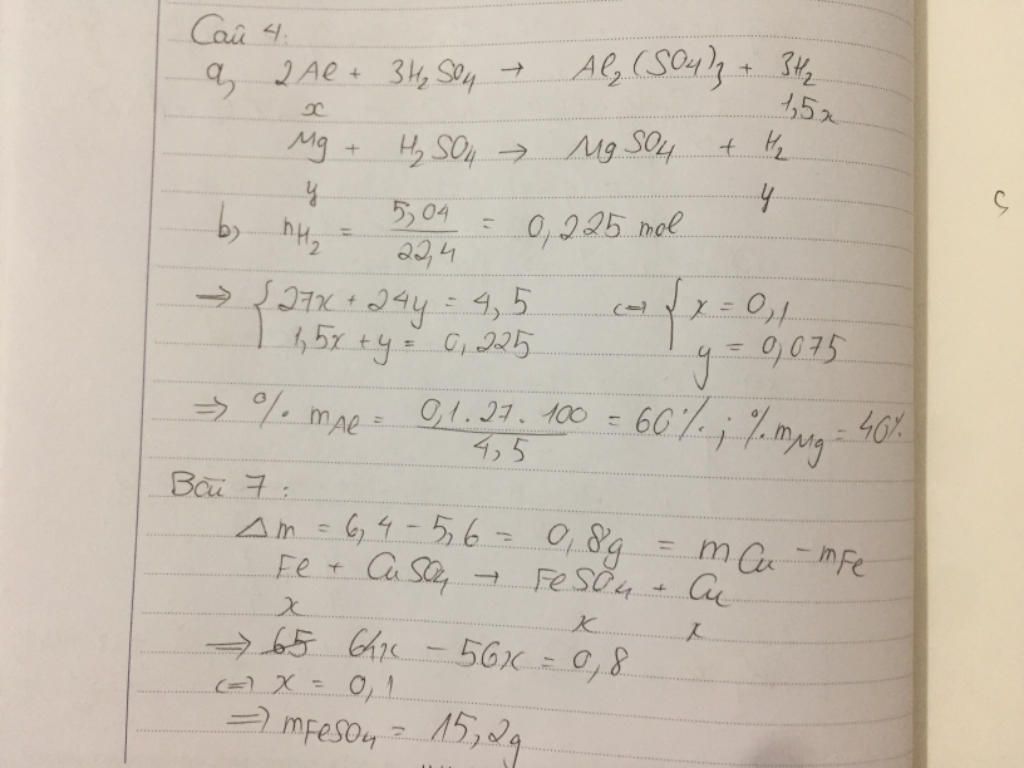 Câu 4:
a, 2Al + 3H₂SO₄ → Al₂(SO₄)₃ + 3H₂
x 1,5x
Mg + H₂SO₄ → MgSO₄ + H₂
y y
b, nH₂ = 5,04/22,4 = 0,225 mol
⇒ { 27x + 24y = 4,5 ⇔ { x = 0,1
1,5x + y = 0,225 y = 0,075
⇒ % mAl = 0,1 . 27 . 100 / 4,5 = 60% ; % mMg = 40%
Bài 7 :
Δm = 6,4 - 5,6 = 0,8g = mCu - mFe
Fe + CuSO₄ → FeSO₄ + Cu
x x x
⇒ 64x - 56x = 0,8
⇔ x = 0,1
⇒ mFeSO₄ = 15,2g